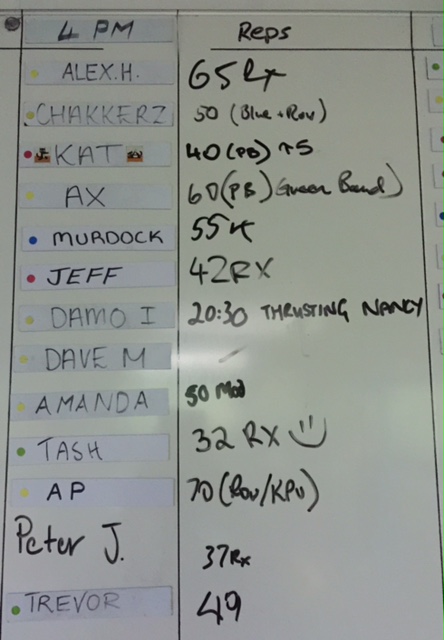 4 PM Reps
ALEX.H. 65 Rx
CHAKKERZ 50 (Blue + Rov)
KAT 40 (PB) 15
AX 60 (PB) Green Band)
MURDOCK 55
JEFF 42 RX
DAMO I 20:30 THRUSTING NANCY
DAVE M -
AMANDA 50 Mod
TASH 32 RX
AP 70 (Rov/KPU)
Peter J. 37 Rx
TREVOR 49